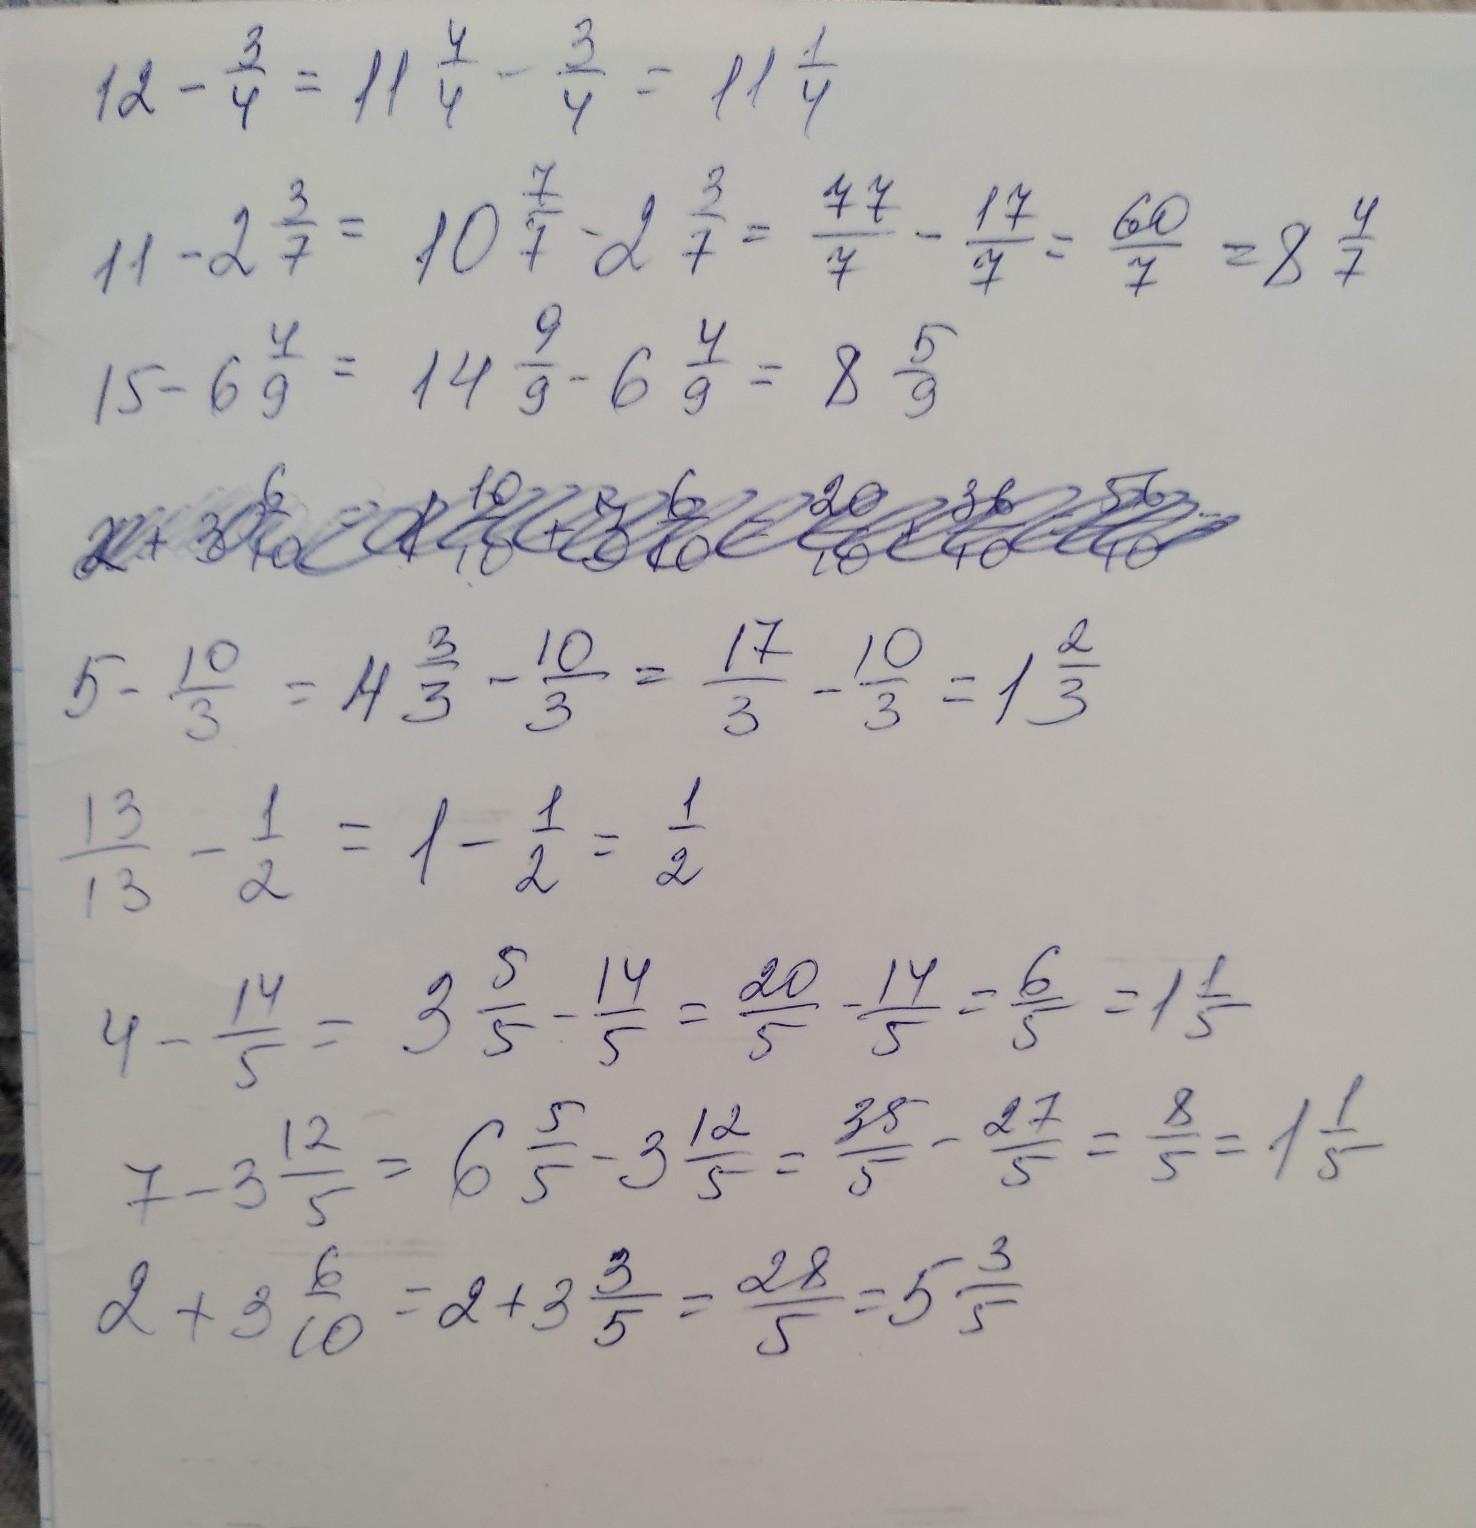 12 - 3/4 = 11 4/4 - 3/4 = 11 1/4
11 - 2 3/7 = 10 7/7 - 2 3/7 = 77/7 - 17/7 = 60/7 = 8 4/7
15 - 6 4/9 = 14 9/9 - 6 4/9 = 8 5/9
5 - 10/3 = 4 3/3 - 10/3 = 17/3 - 10/3 = 1 2/3
13/13 - 1/2 = 1 - 1/2 = 1/2
4 - 14/5 = 3 5/5 - 14/5 = 20/5 - 14/5 = 6/5 = 1 1/5
7 - 3 12/5 = 6 5/5 - 3 12/5 = 35/5 - 27/5 = 8/5 = 1 1/5
2 + 3 6/10 = 2 + 3 3/5 = 28/5 = 5 3/5